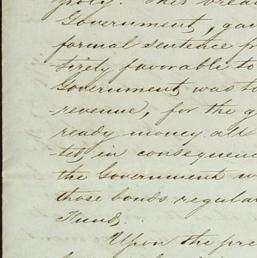 poly. This
Government, gav
formal sentence fr
tirely favorable to
Government was to
revenue, for the q
ready money all
ted, in consequenc
the Government w
those bonds regular
Fund.
Upon the pre